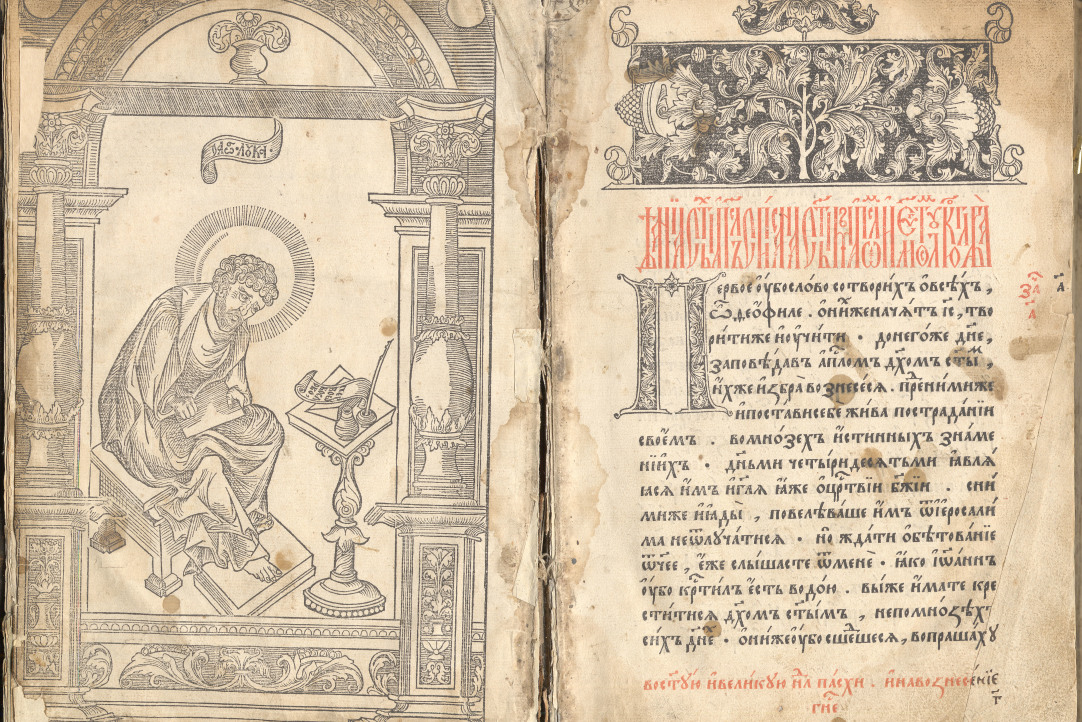 ЛУКА
Первое ᲂу҆бо сло́во сотвори́хъ ѡ҆ всѣ́хъ,
ѽ ѳео́филе. ѻ҆ ни́хже нача́тъ і҆с҃, тво
ри́тиже и҆ ᲂу҆чи́ти. до него́же дн҃е,
заповѣ́давъ а҆пⷭ҇ломъ дх҃омъ ст҃ы́м,
и҆́хже и҆збра̀ вознесе́сѧ. пред ни́ми же
и҆ поста́ви себе жи́ва по страда́нїи
свое́мъ. во мно́зехъ и҆́стинныхъ зна́ме
нїихъ. дн҃ьми четы́ридесѧтьми ꙗ҆влѧ́
ꙗсѧ и҆̀мъ и҆ гл҃ѧ ꙗ҆́же ѡ҆ црⷭ҇твїи бж҃їи. с ни́
миже и҆ ꙗ҆ды̀, повелѣ́ваше и҆̀мъ ѿ і҆еросали́
ма не ѿлуча́тисѧ. но жда́ти ѻ҆бѣтова́нїе
ѻ҆́ч҃ее, е҆́же слы́шасте ѿ менѐ. ꙗ҆́ко і҆ѡа́ннъ
ᲂу҆́бо крⷭ҇ти́лъ є҆́сть водо́ю. вы́же и҆́мате кре
сти́тисѧ дх҃омъ ст҃ы́мъ, не по мно́ѕѣхъ
си́хъ дн҃е. ѻ҆ни́же ᲂу҆́бо сше́дшесѧ, вопраша́хꙋ
во ст҃ꙋ́ю и҆ вели́кꙋю нⷣлю па́схи. и҆ на вознесе́нїе
гн҃е